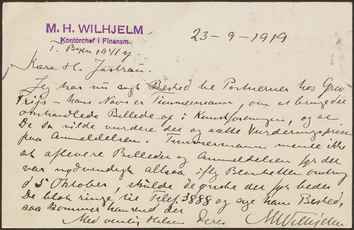 M. H. WILHJELM
Kontorchef i Finansm.
23-9-1919
Kære Hr. Jastrau.
Jeg har nu sagt Besked til Portneren hos Grev
hans Navn er Timmermann, om at bringe det
omhandlede Billede op i Kunstforeningen, og at
De da vilde vurdere det og sætte Vurderingsprisen
paa Anmeldelsen. Timmermann mente ikke
at aflevere Billedet og Anmeldelsen før det
var nødvendigt altsaa iflg Blanketten omkring
d 5' Oktober, skulde det ønskes før bedes
De blot ringe til Telef 3888 og sige ham Besked,
saa kommer han med det
Med venlig Hilsen Deres MWilhjelm